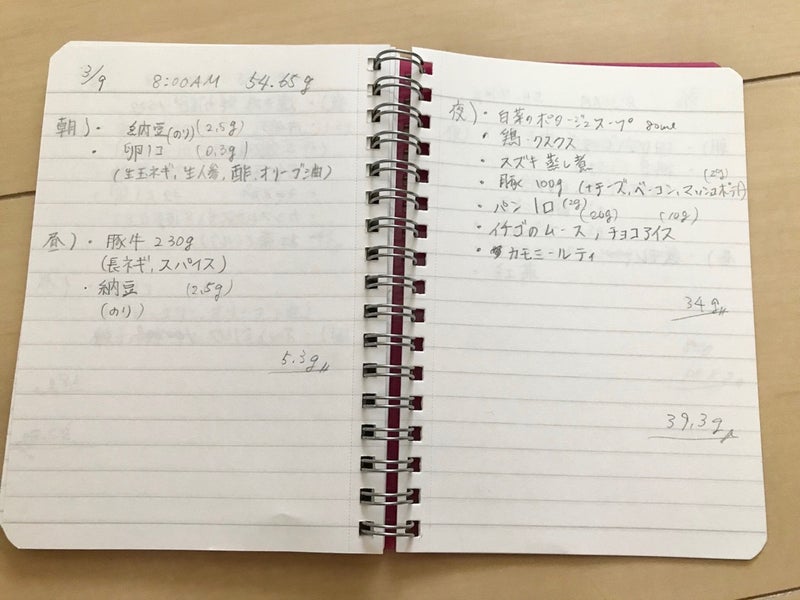 3/9 8:00AM 54.65g
朝)・納豆(のり)(2.5g)
・卵1コ (0.3g)
(生玉ネギ,生人参,酢,オリーブ油)
昼)・豚牛 230g
(長ネギ,スパイス)
・納豆 (2.5g)
(のり)
5.3g
夜)・白菜のポタージュスープ
・鶏・クスクス
・スズキ蒸し煮
・豚 100g (+チーズ,ベーコン,マッシュポテト) (2g)
・パン1口 (2g)
・イチゴのムース (20g),チョコアイス (10g)
・カモミールティ
34g
39.3g